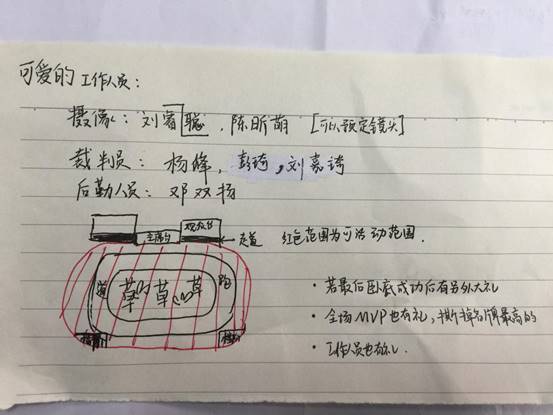 可爱的工作人员：
摄像：刘睿聪，陈昕萌 [可以预定镜头]
裁判员：杨峰，彭琦，刘嘉琦
后勤人员：邓双扬
主席台 观众台
走道 红色范围为可活动范围.
跑 草的草心草 跑
·若最后卧底成功后有另外大礼
·全场MVP也有礼，撕掉名牌最高的
·工作人员也有礼.